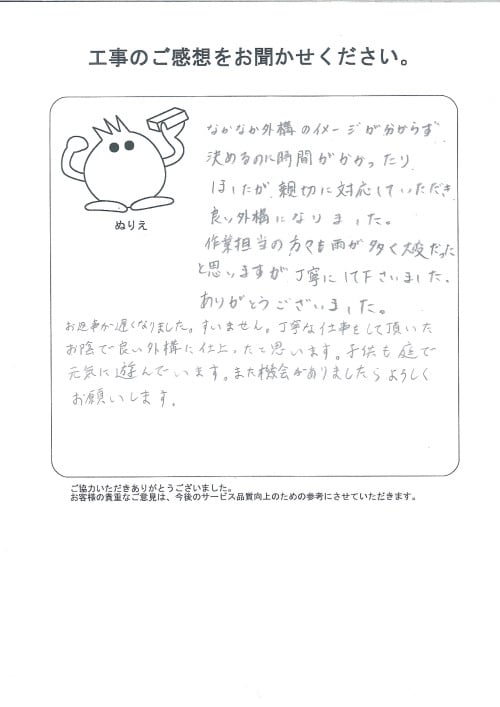 工事のご感想をお聞かせください。
なかなか外構のイメージが分からず
決めるのに時間がかかったり
しましたが、親切に対応していただき
良い外構になりました。
作業担当の方々も雨が多く大変だった
と思いますが丁寧にして下さいました。
ありがとうございました。
ぬりえ
お返事が遅くなりました。すいません。丁寧な仕事をして頂いた
お陰で良い外構に仕上ったと思います。子供も庭で
元気に遊んでいます。また機会がありましたらよろしく
お願いします。
ご協力いただきありがとうございました。
お客様の貴重なご意見は、今後のサービス品質向上のための参考にさせていただきます。